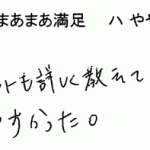 まあまあ満足 ハ やや
トも詳しく教えて
すかった。